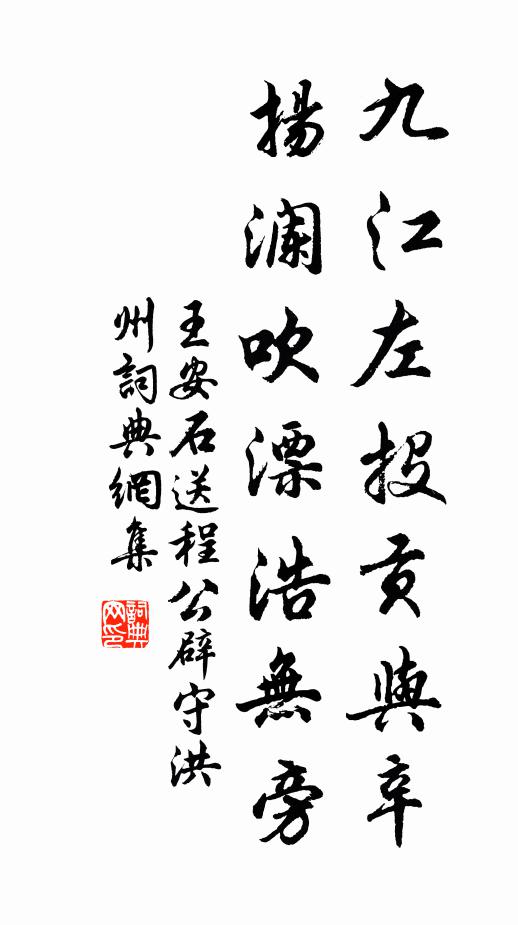 九江左投貢與章
揚瀾吹漂浩無旁
王安石送程公辟守洪
州詞典網集
詞典
网印